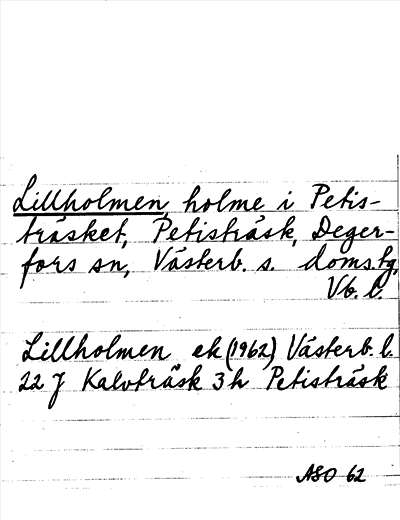 Lillholmen, holme i Petis-
träsket, Petisträsk, Deger-
fors sn, Västerb. s. doms.tg,
Vb. l.
Lillholmen ek (1962) Västerb. l.
22 J Kalvträsk 3h Petisträsk
ASO 62